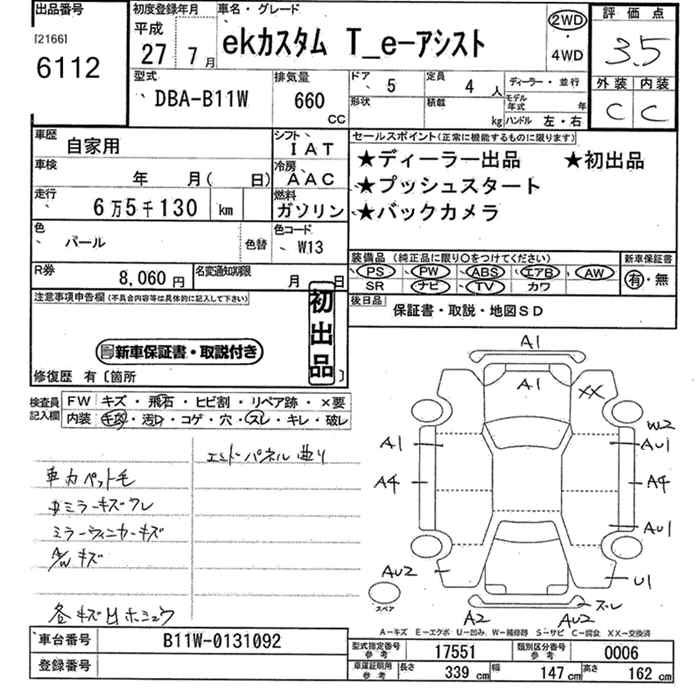 出品番号
[2166]
6112
初度登録年月
平成
27 7月
車名・グレード
ekカスタム T_e-アシスト
2WD
4WD
評価点
3.5
外装 内装
C C
型式
DBA-B11W
排気量
660
CC
ドア 5
形状
定員 4 人
積載 kg
ディーラー・並行
モデル年式 年
ハンドル 左・右
車歴
自家用
シフト
IAT
車検
年 月( 日)
冷房
AAC
走行
6万5千130 km
燃料
ガソリン
色
パール
色替
色コード
W13
R券
8,060円
名変通知期限
月 日
セールスポイント(正常に機能するものに限ります)
★ディーラー出品 ★初出品
★プッシュスタート
★バックカメラ
装備品 (純正品に限り○をつけてください)
PS PW ABS エアB AW
SR ナビ TV カワ
新車保証書
有・無
後日品
保証書・取説・地図SD
注意事項申告欄(不具合内容等は具体的に記入して下さい)
初出品
新車保証書・取説付き
修復歴 有〔箇所 〕
検査員記入欄
FW キズ・飛石・ヒビ割・リペア跡・×要
内装 キズ・汚れ・コゲ・穴・スレ・キレ・破レ
パネル曲り
車内ペット毛
ミラーキズ
ミラーウィンカーキズ
A/Wキズ
各キズ凹ホシュウ
A1
A1
XX
W2
A1
AU1
A4
A4
AU1
AU2
U1
スレ
A2
AU2
スペア
A-キズ E-エクボ U-凹み W-補修跡 S-サビ C-腐食 XX-交換済
車台番号
B11W-0131092
登録番号
型式指定番号 参考
17551
類別区分番号 参考
0006
車庫証明用 参考
長さ 339 cm 幅 147 cm 高さ 162 cm